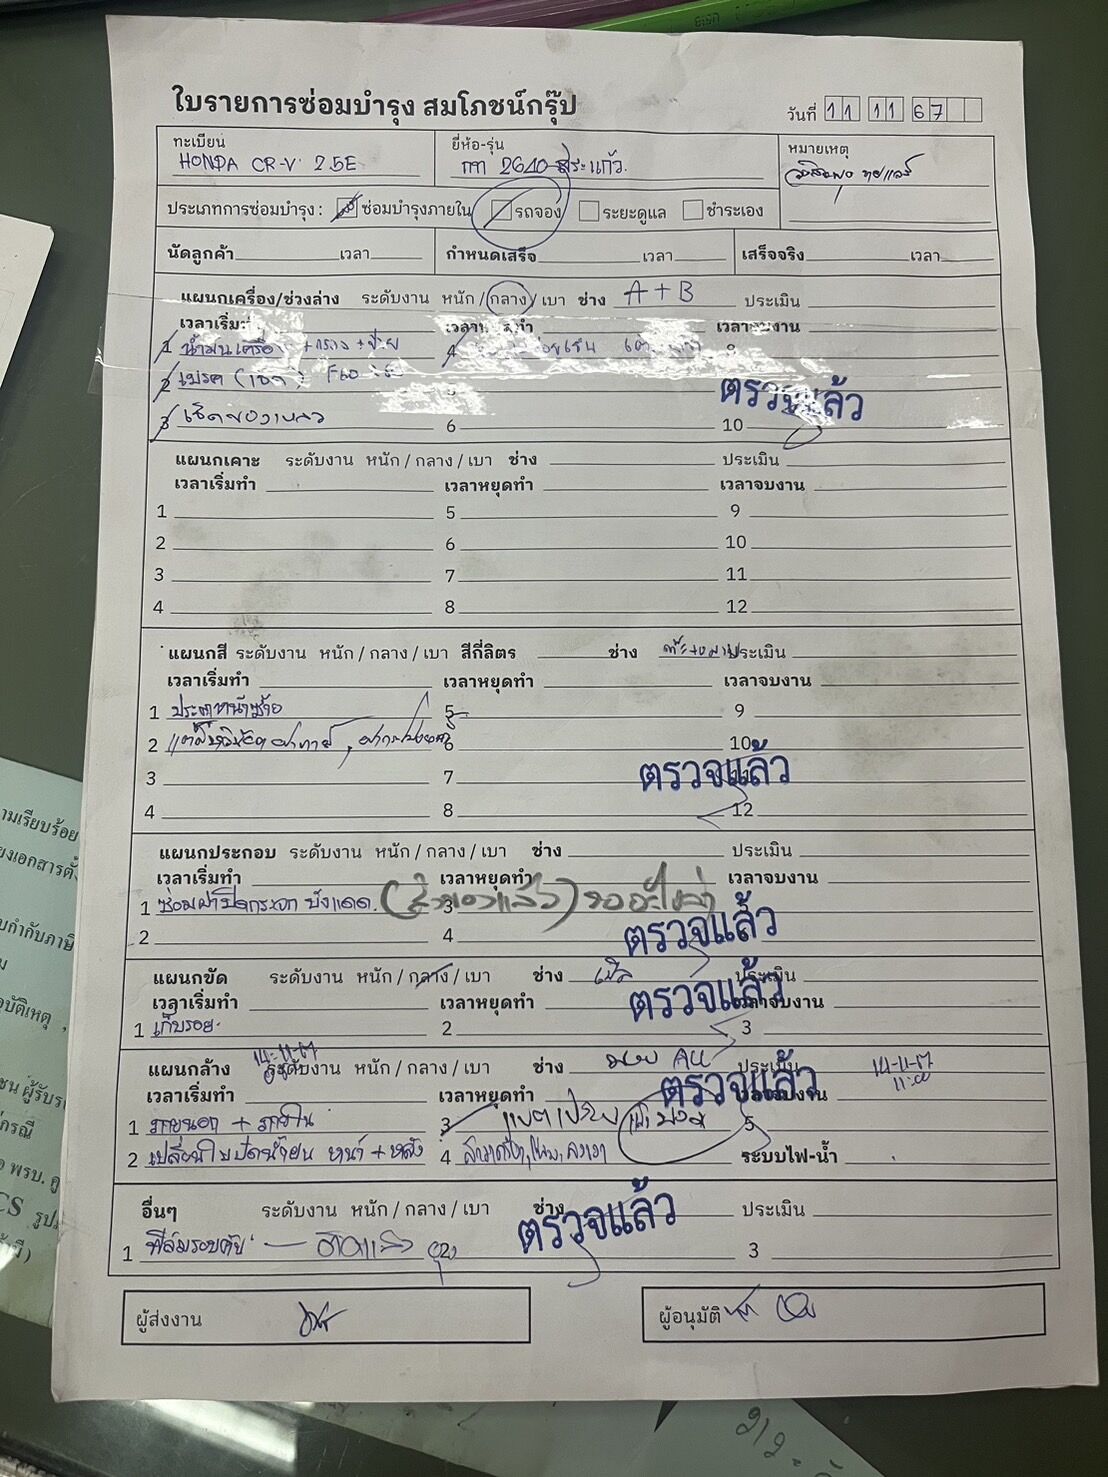 ใบรายการซ่อมบำรุง สมโภชน์กรุ๊ป
วันที่ 11 11 67
ทะเบียน ยี่ห้อ-รุ่น หมายเหตุ
HONDA CR-V 2.5E กท 2640 สระแก้ว
ประเภทการซ่อมบำรุง : ซ่อมบำรุงภายใน รถจอง ระยะดูแล ชำระเอง
นัดลูกค้า เวลา กำหนดเสร็จ เวลา เสร็จจริง เวลา
แผนกเครื่อง/ช่วงล่าง ระดับงาน หนัก / กลาง / เบา ช่าง A + B ประเมิน
เวลาเริ่ม เวลา ทำ เวลาจบงาน
1 น้ำมันเครื่อง + กรอง 4
2 เบรค
ตรวจแล้ว
3 เช็ดของเหลว 6 10
แผนกเคาะ ระดับงาน หนัก / กลาง / เบา ช่าง ประเมิน
เวลาเริ่มทำ เวลาหยุดทำ เวลาจบงาน
1 5 9
2 6 10
3 7 11
4 8 12
แผนกสี ระดับงาน หนัก / กลาง / เบา สีกี่ลิตร ช่าง ประเมิน
เวลาเริ่มทำ เวลาหยุดทำ เวลาจบงาน
1 ประตูหน้าซ้าย 5 9
2 6 10
3 7 11
ตรวจแล้ว
4 8 12
แผนกประกอบ ระดับงาน หนัก / กลาง / เบา ช่าง ประเมิน
เวลาเริ่มทำ เวลาหยุดทำ เวลาจบงาน
1 ซ่อมฝาปิดกระจก บังแดด. (สั่งของแล้ว) รออะไหล่ 3
2 4
ตรวจแล้ว
แผนกขัด ระดับงาน หนัก / กลาง / เบา ช่าง ประเมิน
เวลาเริ่มทำ เวลาหยุดทำ เวลาจบงาน
ตรวจแล้ว
1 เก็บรอย 2 3
แผนกล้าง 14-11-67 ระดับงาน หนัก / กลาง / เบา ช่าง ประเมิน 14-11-67
11:00
เวลาเริ่มทำ เวลาหยุดทำ เวลาจบงาน
ตรวจแล้ว
1 ภายนอก + ภายใน 3 5
2 เปลี่ยนใบปัดน้ำฝน หน้า + หลัง 4 ระบบไฟ-น้ำ
อื่นๆ ระดับงาน หนัก / กลาง / เบา ช่าง ประเมิน
ตรวจแล้ว
1 ฟิล์มรอบคัน - ติดแล้ว 2 3
ผู้ส่งงาน ผู้อนุมัติ